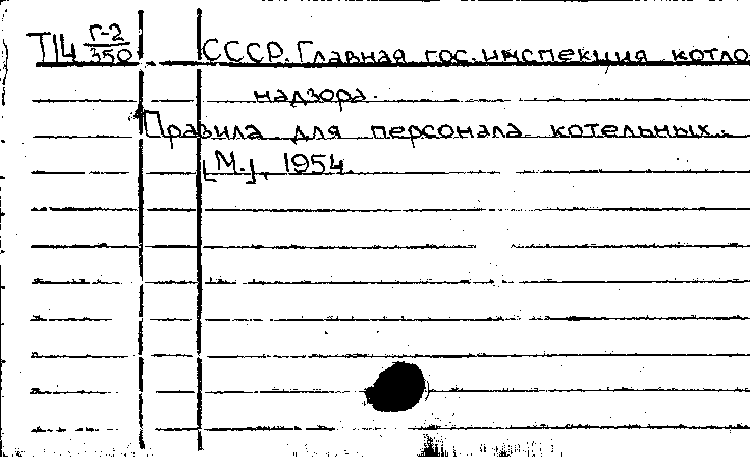 Т14 Г-2/350 СССР. Главная гос. инспекция котло
надзора.
Правила для персонала котельных..
[М.], 1954.